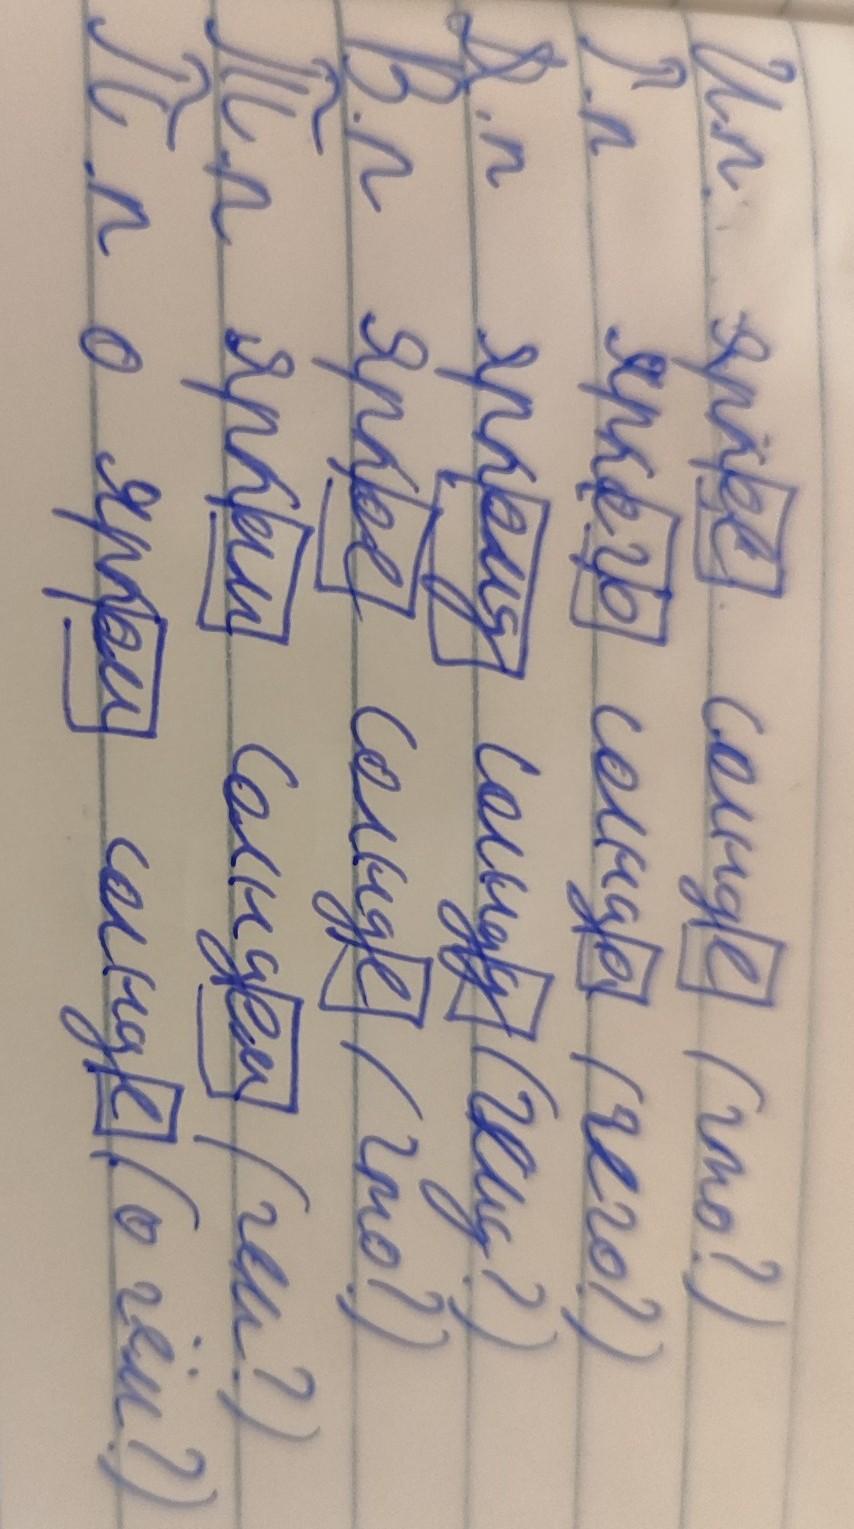 И.п. яркое солнце (что?)
Р.п яркого солнца (чего?)
Д.п яркому солнцу (чему?)
В.п яркое солнце (что?)
Т.п ярким солнцем (чем?)
П.п о ярком солнце (о чём?)